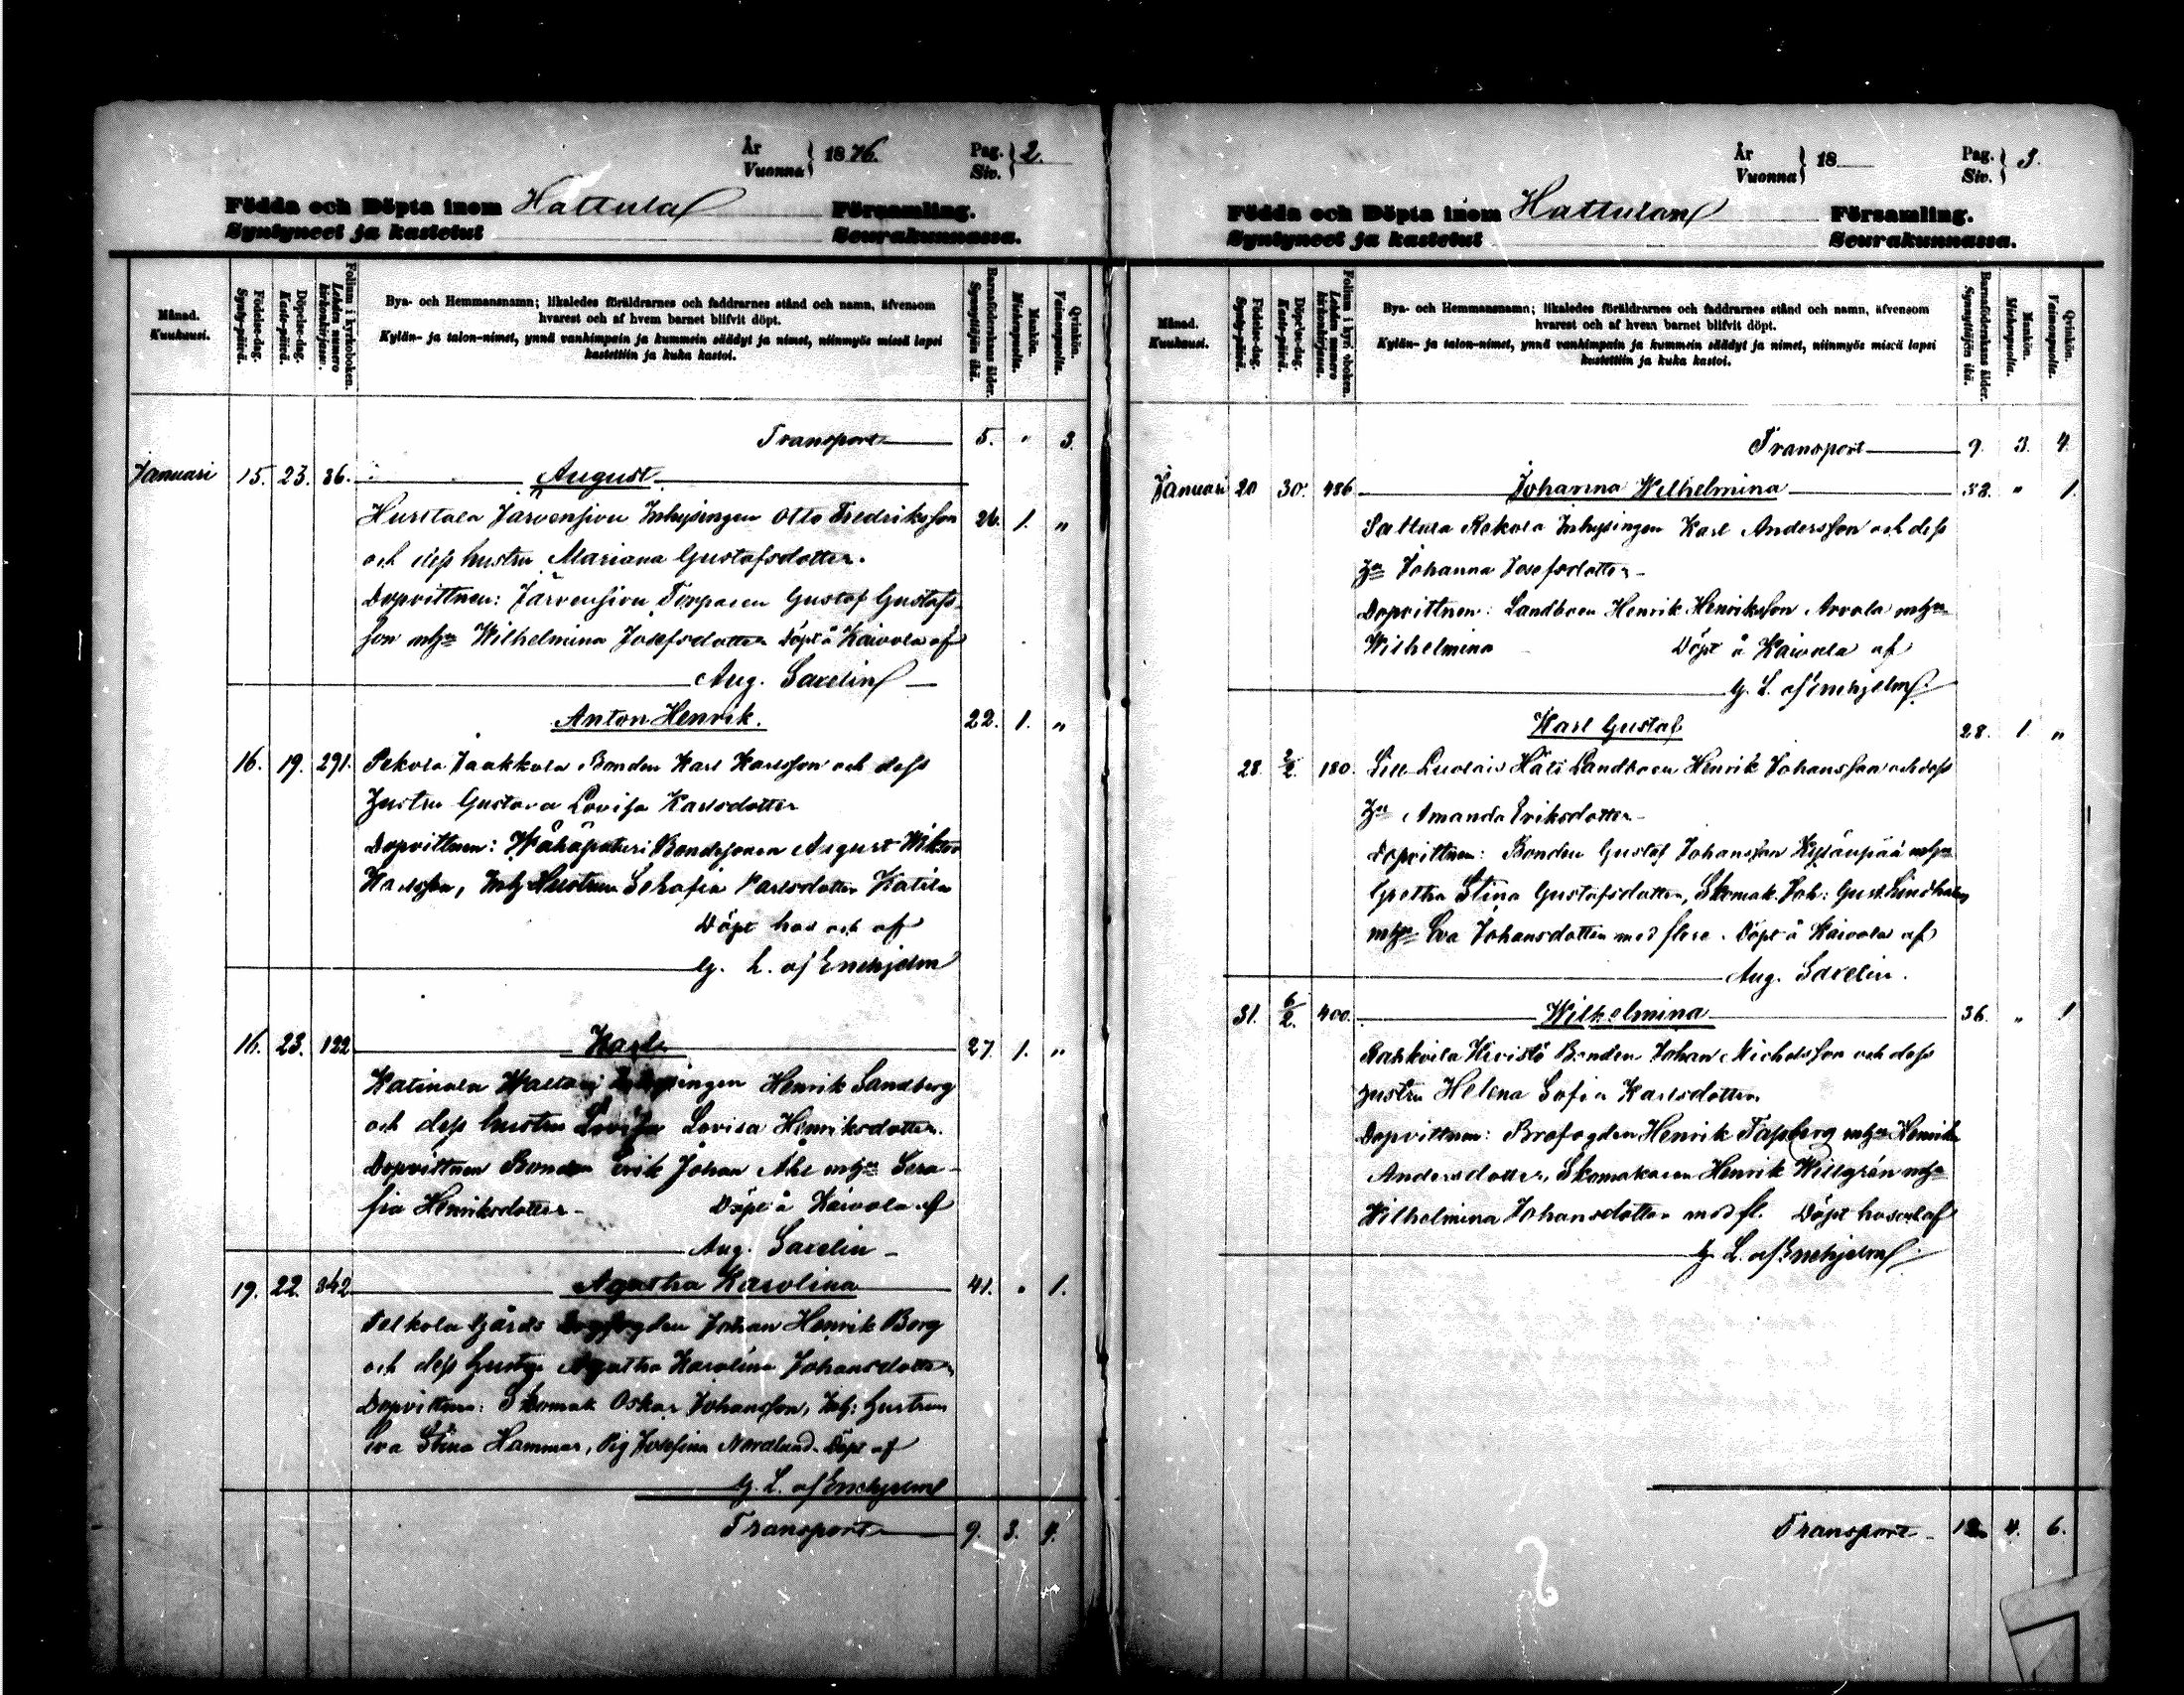 År
Vuonna } 1876. Pag.
Siv. } 2.
Födda och Döpta inom Hattula Församling.
Syntyneet ja kastetut Seurakunnassa.
Månad.
Kuukausi.
Födelse-dag.
Synty-päivä.
Döpelse-dag.
Kaste-päivä.
Folium i kyrkoboken.
Lehden numero kirkonkirjassa.
Bya- och Hemmansnamn; likaledes föräldrarnes och faddrarnes stånd och namn, äfvensom
hvarest och af hvem barnet blifvit döpt.
Kylän- ja talon-nimet, ynnä vanhimpain ja kummein säädyt ja nimet, niinmyös missä lapsi
kastettiin ja kuka kastoi.
Barnaföderskans ålder.
Synnyttäjän ikä.
Mankön.
Miehenpuolia.
Qvinkön.
Vaimonpuolia.
Transport 5. " 3.
Januari 15. 23. 36. August.
Hurttala Järvensivu Inhysingen Otto Fredriksson 26. 1. "
och dess hustru Mariana Gustafsdotter.
Dopvittnen: Järvensivu Torparen Gustaf Gustafs-
son m hu Wilhelmina Josefsdotter Döpt å Kaivola af
Aug. Saxelin
Anton Henrik. 22. 1. "
16. 19. 291. Pekola Jaakkola Bonden Karl Karlsson och dess
Hustru Gustava Lovisa Karlsdotter
Dopvittnen: Bondesonen August Wiktor
Karlsson, Inh Hustrun Serafia Karlsdotter Katila
Döpt hos och af
G. L. af Enehjelm
16. 23. 122 Karl 27. 1. "
Katinala Henrik Sandberg
och dess hustru Lovisa Henriksdotter.
Dopvittnen Bonden Erik Johan m hu Sera-
fia Henriksdotter - Döpt å Kaivola af
Aug. Saxelin -
19. 22. 342 Agatha Karolina 41. " 1.
Pelkola Gårds Johan Henrik Berg
och dess Hustru Agatha Karolina Johansdotter
Dopvittnen: Skomak Oskar Johansson, Inh: Hustrun
Eva Stina Hammar, Pig Josefina Nordlund. Döpt af
G. L. af Enehjelm
Transport 9. 3. 4.
År
Vuonna } 18 Pag.
Siv. } 3.
Födda och Döpta inom Hattula Församling.
Syntyneet ja kastetut Seurakunnassa.
Månad.
Kuukausi.
Födelse-dag.
Synty-päivä.
Döpelse-dag.
Kaste-päivä.
Folium i kyrkoboken.
Lehden numero kirkonkirjassa.
Bya- och Hemmansnamn; likaledes föräldrarnes och faddrarnes stånd och namn, äfvensom
hvarest och af hvem barnet blifvit döpt.
Kylän- ja talon-nimet, ynnä vanhimpain ja kummein säädyt ja nimet, niinmyös missä lapsi
kastettiin ja kuka kastoi.
Barnaföderskans ålder.
Synnyttäjän ikä.
Mankön.
Miehenpuolia.
Qvinkön.
Vaimonpuolia.
Transport 9. 3. 4.
Januari 20 30. 486 Johanna Wilhelmina 32. " 1.
Sattula Rokola Inhysingen Karl Andersson och dess
Hu Johanna Josefsdotter -
Dopvittnen: Landboen Henrik Henriksson Arvola m hu
Wilhelmina Döpt å Kaivola af
G. L. af Enehjelm.
Karl Gustaf 28. 1. "
28. 2/2. 180. Lill Luolais Landboen Henrik Johansson och dess
Hu Amanda Eriksdotter -
Dopvittnen: Bonden Gustaf Johansson m hu
Gretha Stina Gustafsdotter, Skomak. Joh: Gust. Lindholm
m hu Eva Johansdotter med flere. Döpt å Kaivola af
Aug. Saxelin.
31. 6/2. 400. Wilhelmina 36. " 1
Rahkoila Kivistö Bonden Johan Michelsson och dess
hustru Helena Sofia Karlsdotter
Dopvittnen: Brofogden Henrik m hu Henrika
Andersdotter, Skomakaren Henrik Willgrén m hu
Wilhelmina Johansdotter med fl. Döpt hos och af
G. L. af Enehjelm.
Transport - 12 4. 6.